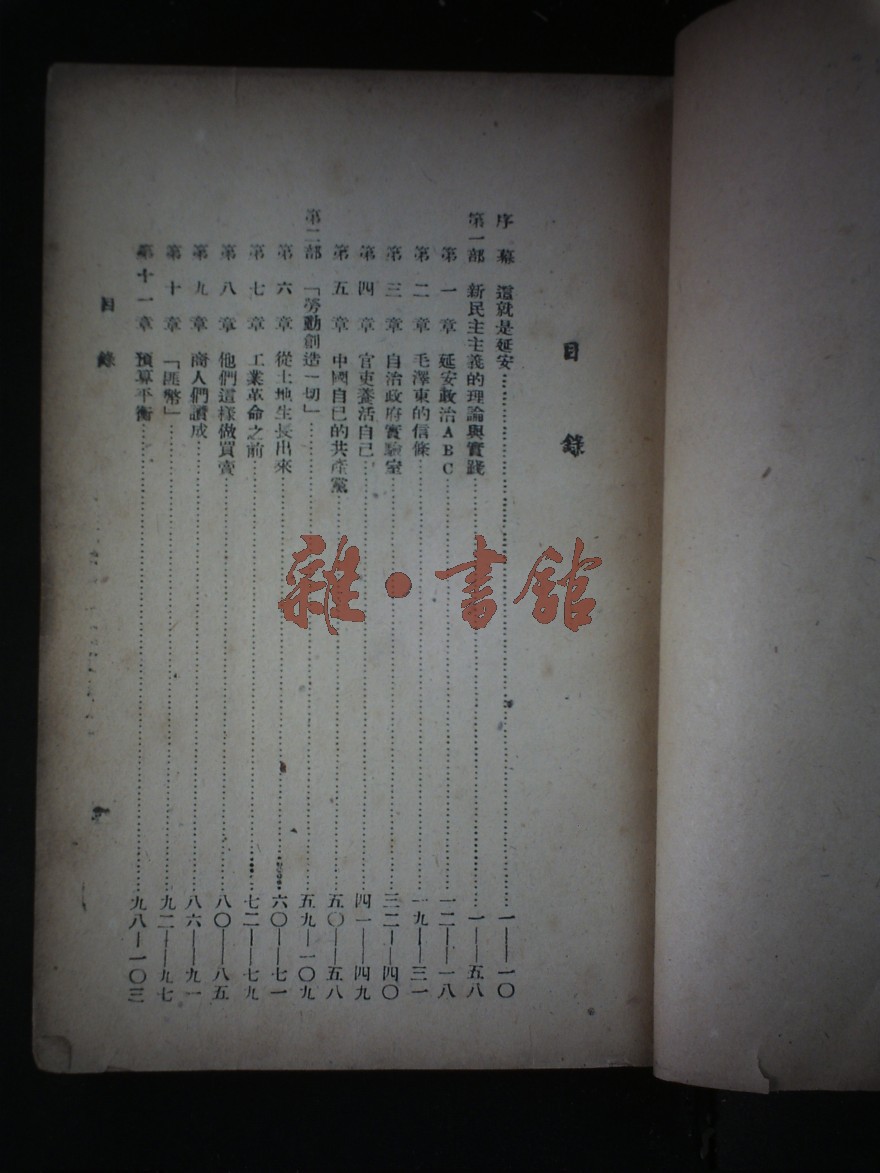 目錄
序幕 這就是延安……一——一〇
第一部 新民主主義的理論與實踐……一——五八
第一章 延安政治ABC……一二——一八
第二章 毛澤東的信條……一九——三一
第三章 自治政府實驗室……三二——四〇
第四章 官吏養活自己……四一——四九
第五章 中國自己的共產黨……五〇——五八
第二部 「勞動創造一切」……五九——一〇九
第六章 從土地生長出來……六〇——七一
第七章 工業革命之前……七二——七九
第八章 他們這樣做買賣……八〇——八五
第九章 商人們讚成……八六——九一
第十章 「匯幣」……九二——九七
第十一章 預算平衡……九八——一〇三
目錄
雜·書館